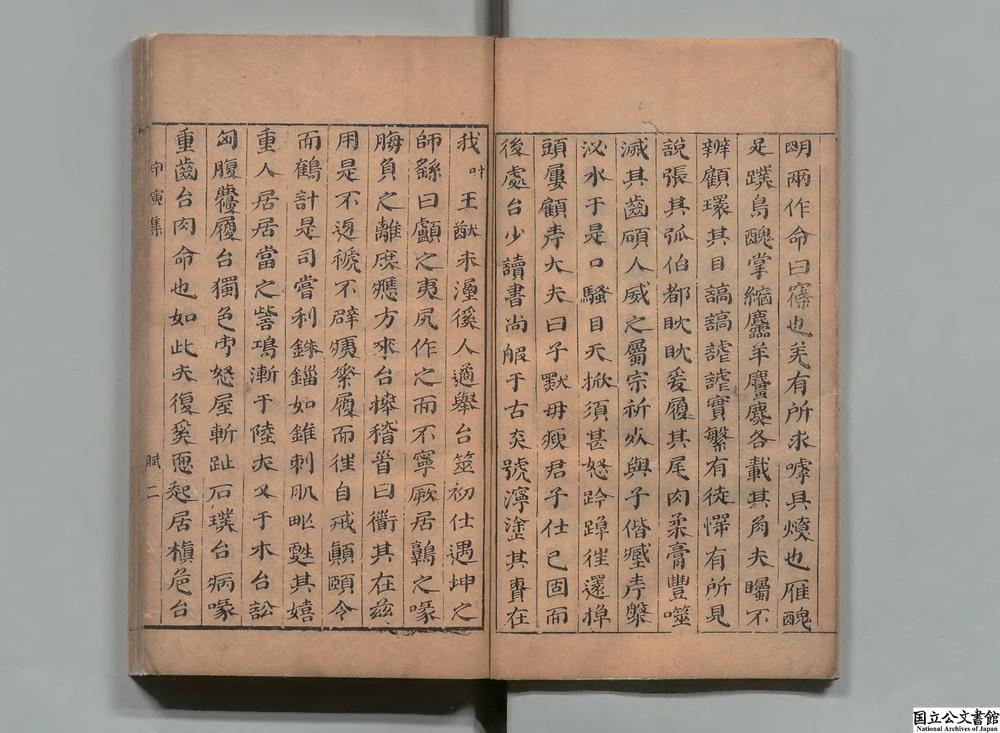 明兩作命曰寀也羌有所求嘑具燌也雁醜
足蹼鳥醜掌縮麤羊麢麋各載其角夫矚不
辬顧環其目謞謞謔謔實繁有徒憚有所見
說張其弧伯都眈眈爰履其尾肉柔膏豐噬
滅其齒碩人威之屬宗祈从與子偕癦龙槃
泌水于是口騷目天掀須甚怒跉踔徃還掉
頭屢顧龙大夫曰子默毋瘐君子仕已固而
後處台少讀書尚服于古炎號濘塗其賚在
我叶王猷未溼徯人適舉台筮初仕遇坤之
師繇曰顱之夷尻作之而不寧厥居鷯之喙
脢負之離庶癦方來台擽稽晉曰衢其在兹
用是不迓褫不辟痍綮履而徃自戒顛頤令
而鶴計是司嘗利銖錙如錐刺肌㽙甦其嬉
重人居居當之訾鴻漸于陸夫又于木台訟
匈腹虁履台獨色甹怒屋斬趾石璞台病喙
重齒台肉命也如此夫復奚恧起居槙危台
甲寅集
賦
二
国立公文書館
National Archives of Japan